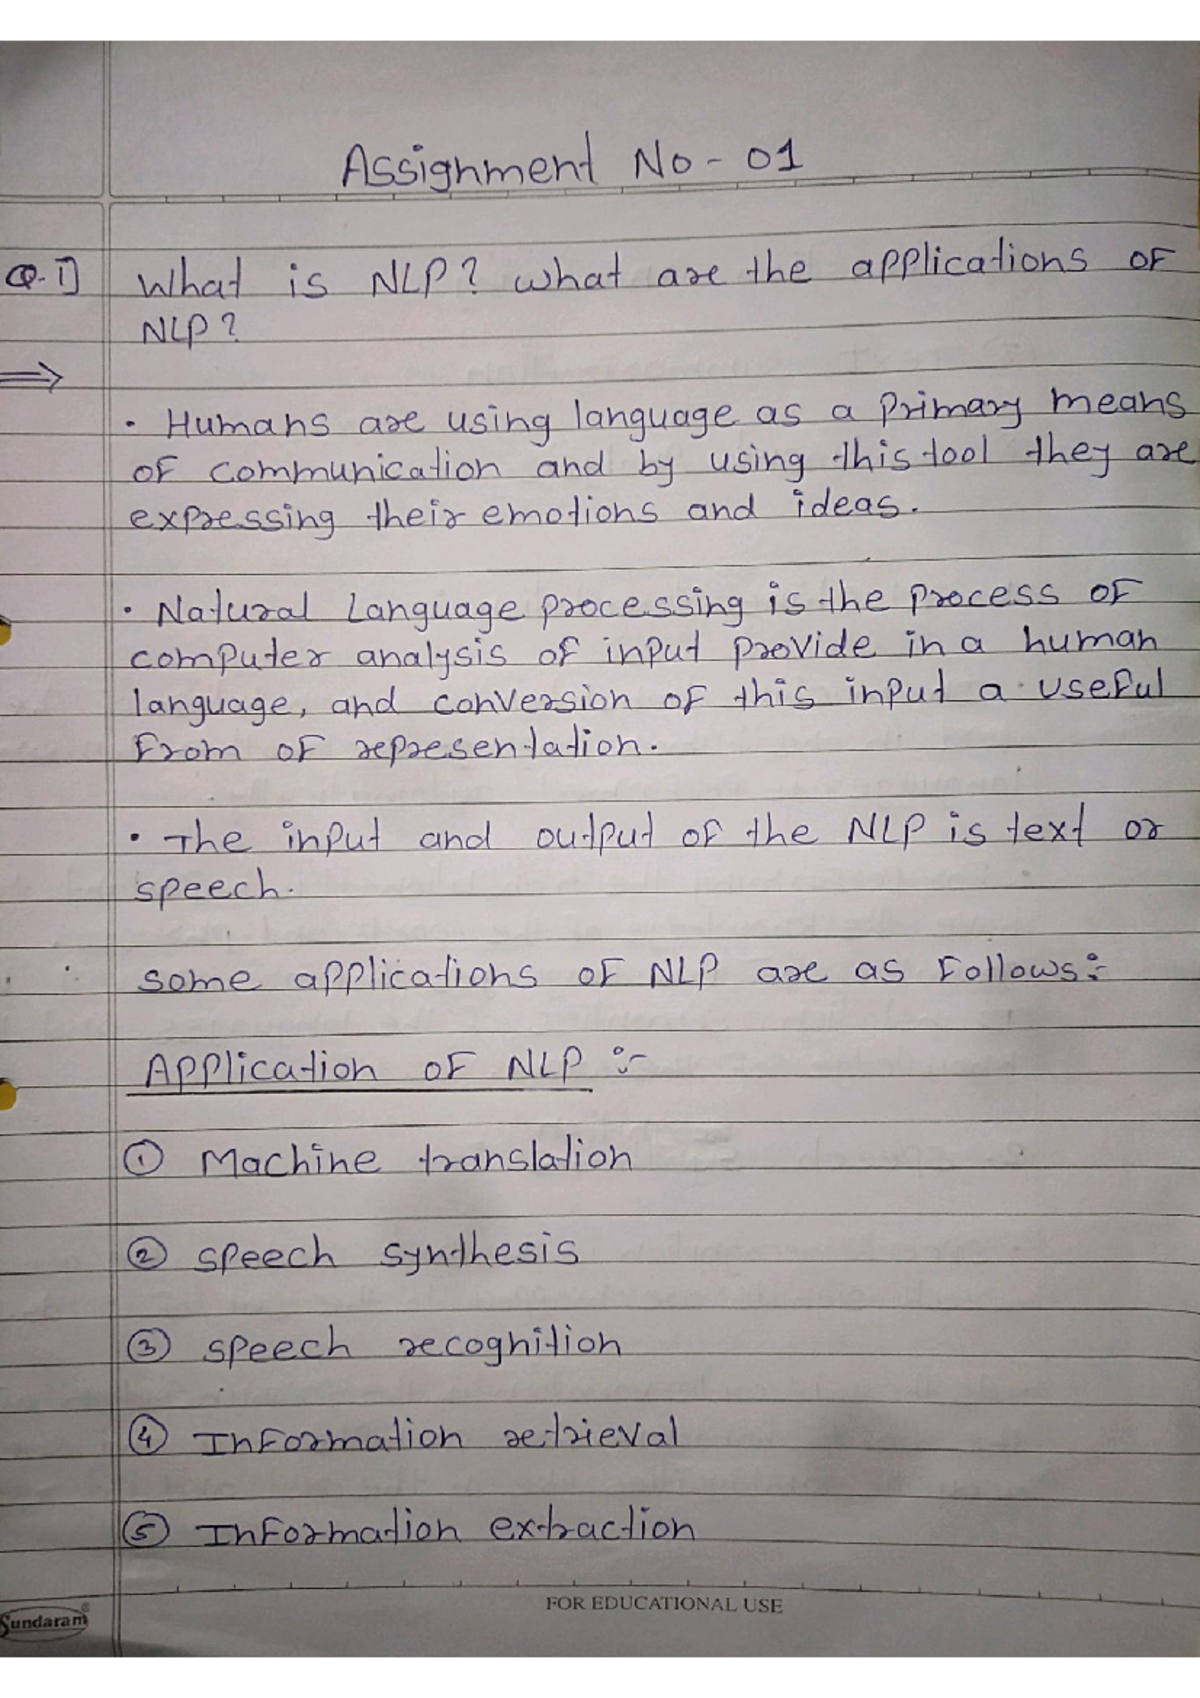 Assignment No - 01
Q.1] What is NLP? what are the applications of
NLP?
⇒
· Humans are using language as a primary means
of communication and by using this tool they are
expressing their emotions and ideas.
· Natural Language processing is the process of
computer analysis of input provide in a human
language, and conversion of this input a useful
from of representation.
· The input and output of the NLP is text or
speech.
some applications of NLP are as follows:-
Application of NLP :-
① Machine translation
② speech synthesis
③ speech recognition
④ Information retrieval
⑤ Information extraction
FOR EDUCATIONAL USE
Sundaram®